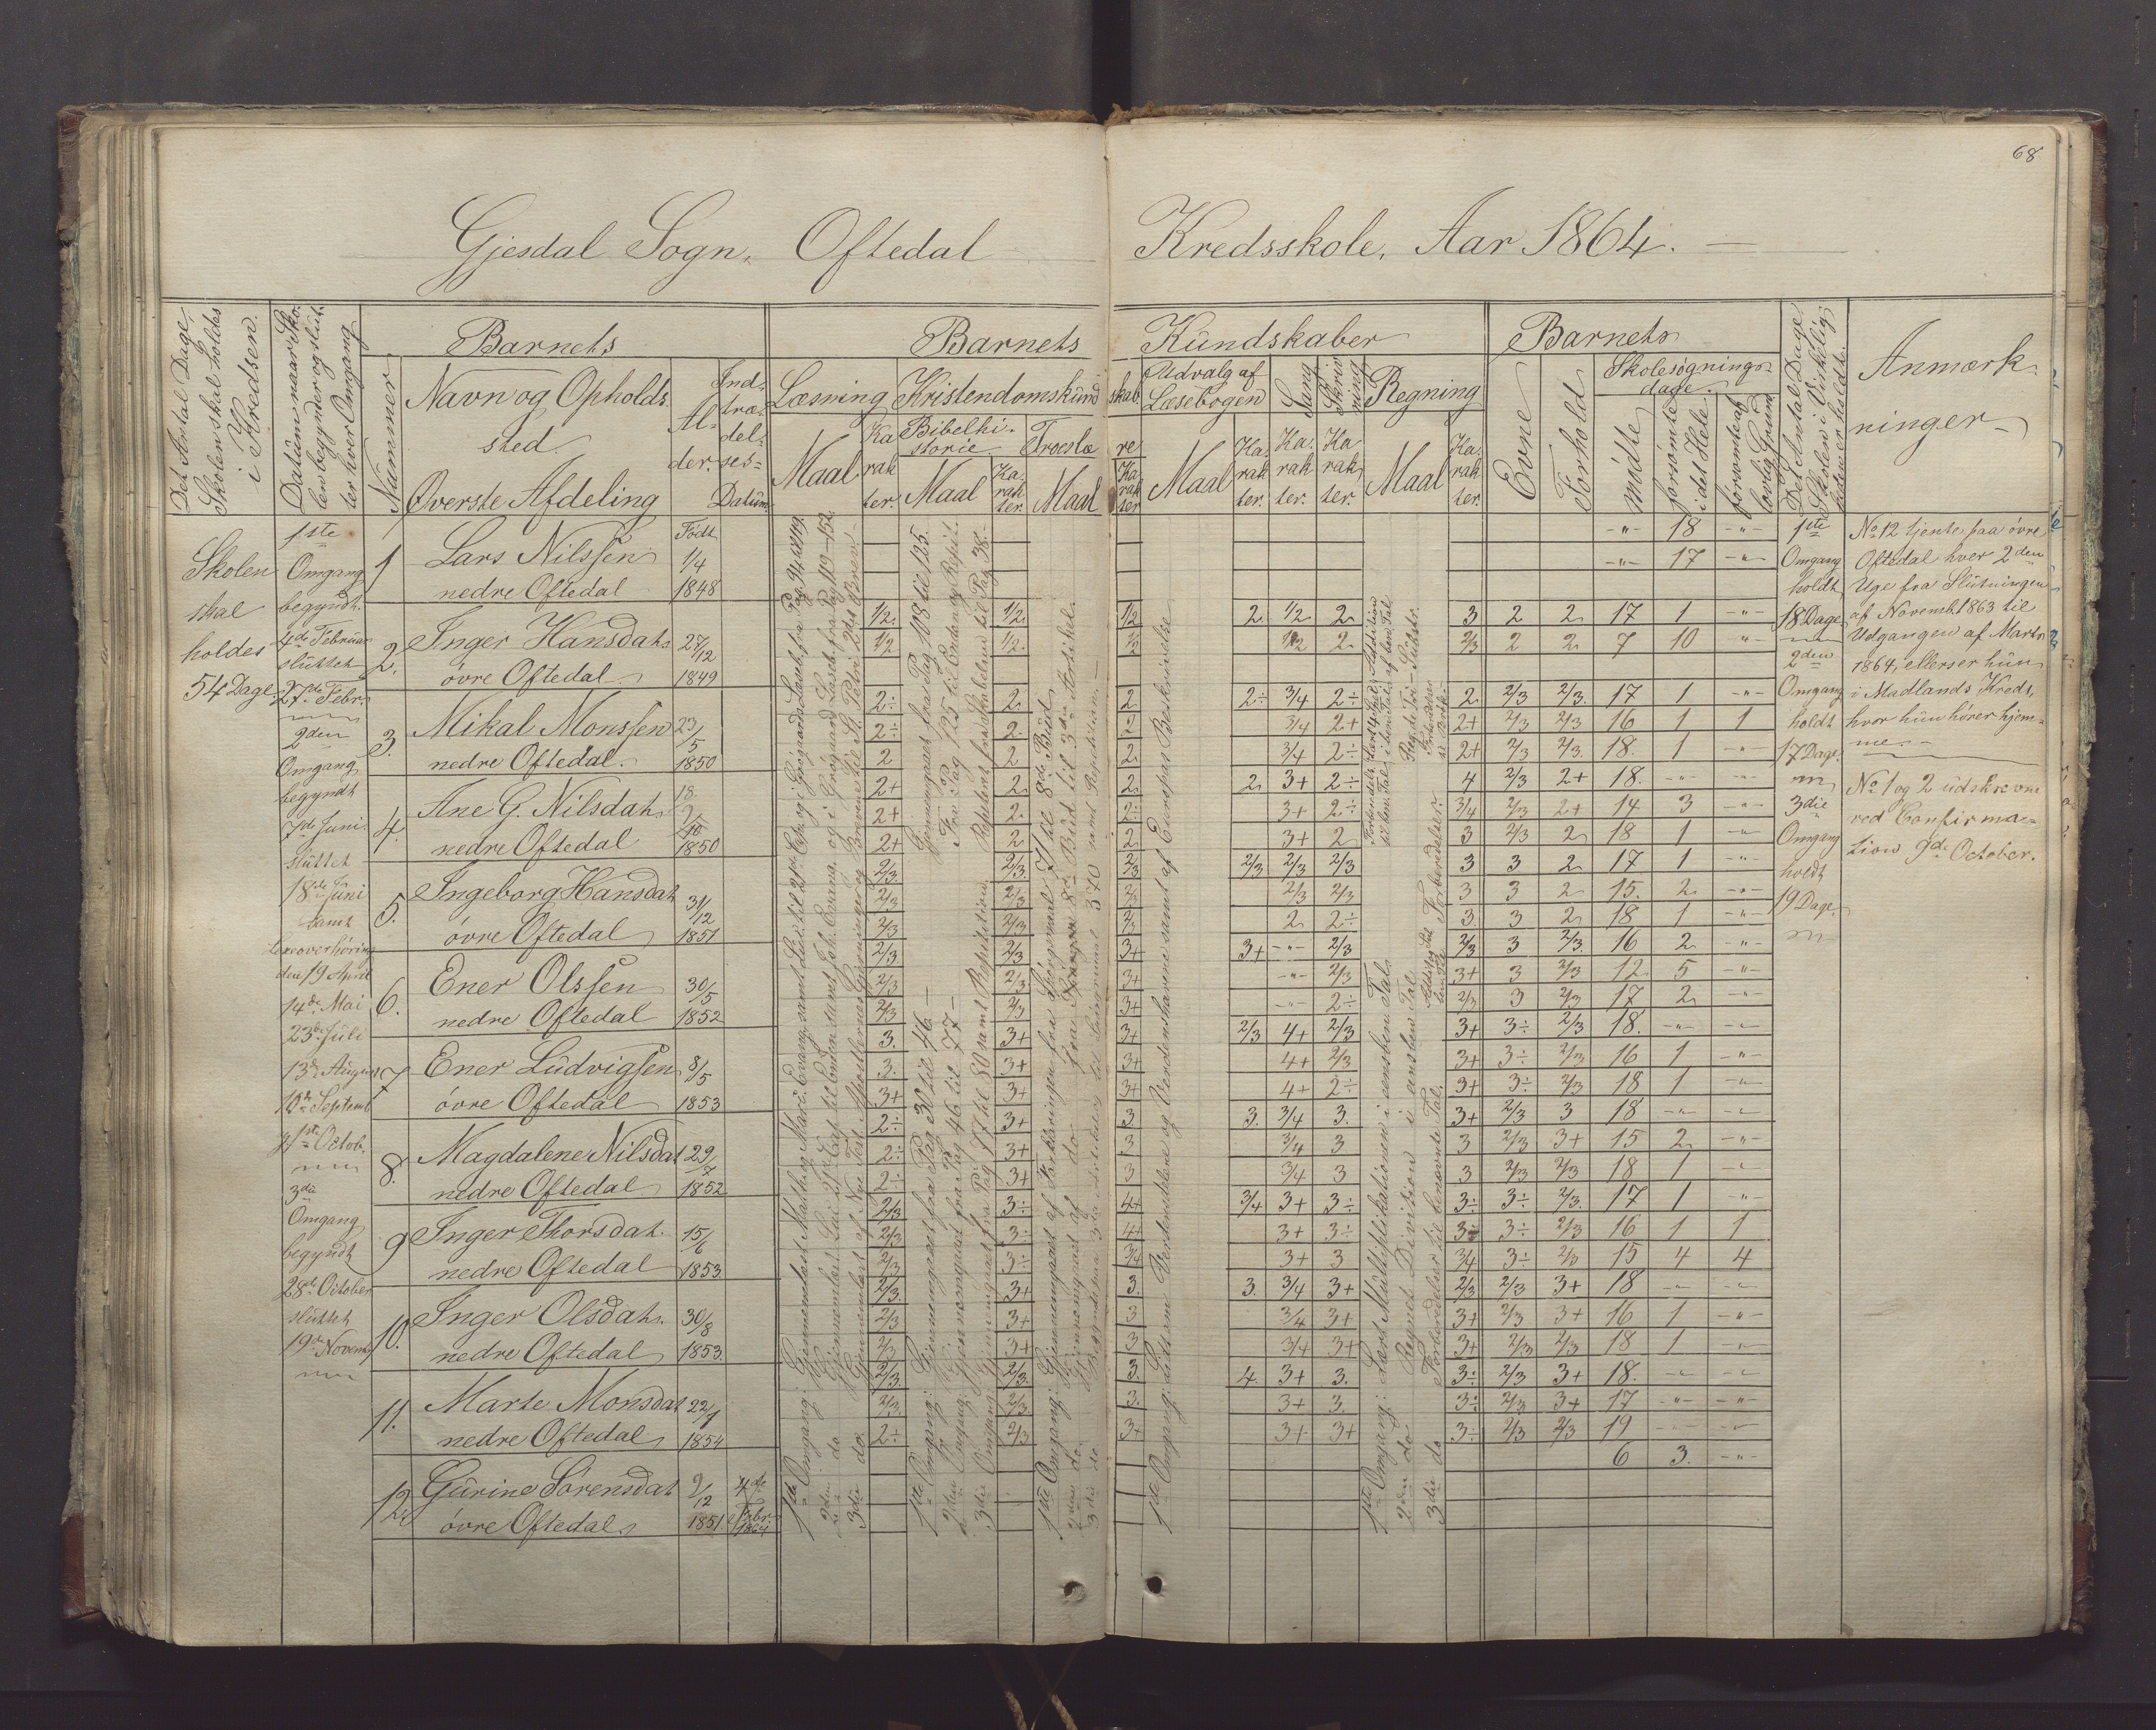 68
Gjesdal Sogn, Oftedal Kredsskole, Aar 1864.
Det Antal Dage,
Skolen skal holdes
i Kredsen.
Datum naar Sko-
len begynder og slut-
ter hver Omgang
Barnets
Nummer
Navn og Opholds
sted.
Øverste Afdeling
Al-
der.
Ind-
træ-
del-
ses-
Datum
Barnets Kundskaber
Læsning
Maal
Ka
rak
ter.
Kristendomskund
skab.
Bibelhi-
storie
Maal
Ka
rak
ter.
Troeslæ
re
Maal
Ka
rak
ter
Udvalg af
Læsebogen
Maal
Ka
rak
ter.
Sang
Ka
rak
ter.
Skriv
ning
Ka
rak
ter.
Regning
Maal
Ka
rak
ter.
Barnets
Evne
Forhold
Skolesøgnings-
dage.
mødte
forsømte
i det Hele
forsømte af
lovlig Grund
Det Antal Dage
Skolen i Virkelig
heden er holdt.
Anmærk-
ninger
Skolen
skal
holdes
54 Dage.
1ste
Omgang
begyndt.
4de Februar
sluttet
27de Febr.
2den
Omgang
begyndt
7de Juni
sluttet
18de Juni
samt
Lexeoverhøring
den 19 April
14de Mai
23de Juli
13de August
10de Septemb
1ste Octob.
3die
Omgang
begyndt
28de October
sluttet
19de Novemb
1 Lars Nilssen Født 1/4
nedre Oftedal 1848
2. Inger Hansdat. 27/12
øvre Oftedal 1849
3. Mikal Monssen 23/5
nedre Oftedal. 1850
4. Ane G. Nilsdat.
nedre Oftedal 1850
5. Ingeborg Hansdat 31/12
øvre Oftedal 1851
6. Ener Olssen 30/5
nedre Oftedal 1852
7 Ener Ludvigsen 8/5
øvre Oftedal 1853
8. Magdalene Nilsdat 29/7
nedre Oftedal 1852
9 Inger Thorsdat. 15/6
nedre Oftedal 1853
10. Inger Olsdat. 30/8
nedre Oftedal 1853
11. Marte Monsdat 22/1
nedre Oftedal 1854
12. Gurine Sørensdat 9/12 4de
øvre Oftedal 1851 Febr. 1864
-"- 18 -"-
-"- 17 -"-
1/2. 1/2. 1/2 2. 1/2 2 3 2 2 17 1 -"-
1/2 1/2. 1/2 1/2 2 2/3 2 2 7 10 "
2÷ 2. 2 2÷ 3/4 2÷ 2. 2/3 2/3. 17 1 -"-
2÷ 2. 2 3/4 2+ 2+ 2/3 2/3 16 1 1
2 2 2. 3/4 2÷ 2+ 2/3 2/3. 18. 1 -"-
2+ 2. 2. 2. 3+ 2÷ 4 2/3 2+ 18. -"- -"-
2+ 2. 2÷ 3+ 2÷ 3/4 2/3 2+ 14 3 -"-
2+ 2 2 3+ 2 3 2/3 2 18 1 -"-
2/3. 2/3. 2/3 2/3 2/3 2/3 3 3 2 17 1 -"-
2/3 2/3 2/3 2/3 2/3 3 3 2 15. 2. -"-
2/3 2/3 2/3 2 2÷ 3. 3 2 18 1 -"-
2/3 2/3 3+ 3+ -"- 2/3 2/3 3 2/3. 16 2 -"-
2/3 2/3 3+ -"- 2/3 3+ 3 2/3 12 5 -"-
2/3 2/3 3+ -"- 2÷ 2/3 3 2/3 17 2 -"-
3. 3+ 3+ 2/3 4+ 2/3 3+ 3÷ 2/3 18. -"- -"-
3. 3+ 3+ 4+ 2/3 3+ 3÷ 2/3 16 1 -"-
3+ 3+ 3+ 4+ 2÷ 3+ 3÷ 2/3 18 1 -"-
2÷ 3+ 3. 3. 3/4 3. 3+ 2/3 3 18 -"- -"-
2÷ 3+ 3 3/4 3 3 2/3 3+ 15 2 -"-
2÷ 3+ 3 3/4 3 3 2/3 2/3 18 1 -"-
2/3 3÷ 4+ 3/4 3+ 3÷ 3÷ 3÷ 2/3. 17 1 -"-
2/3 3÷ 4+ 3+ 3÷ 3÷ 3÷ 2/3 16 1 1
2/3 3÷ 3/4 3+ 3 3/4 3÷ 2/3 15 4 4
2/3. 3+ 3. 3. 3/4 3+ 2/3 2/3 3+ 18 -"- -"-
2/3 3+ 3 3/4 3+ 3+ 2/3 3+ 16 1 -"-
2/3 3+ 3 3/4 3+ 3+ 2/3 2/3 18 1 -"-
2/3. 2/3. 3. 4. 3+ 3. 3÷ 2/3 3+ 18. -"- -"-
2/3. 2/3. 3. 3+ 3. 3÷ 2/3 3+ 17 -"- -"-
2÷ 2/3 3+ 3+ 3+ 3÷ 2/3 2/3 19 -"- -"-
6 3. -"-
1ste Omgang: Gjennemgaaet fra Pag 30 til 46 —
2den Omgang: Gjennemgaaet fra Pag 46 til 77 —
3die Omgang: Gjennemgaaet fra Pag 77 til 80 samt Repetition.
Gjennemgaaet fra Pag 108 til 125.
1ste Omgang: Gjennemgaaet af Forklaringen fra Spørgsmaal 71 til 8de Bud
1ste Omgang: Læst om Verdensdelene og Verdenshavene samt af Europas Beskrivelse
1ste Omgang: Lært Multiplikationen i eensben. Tal.
2den do Regnet Division i eensben. Tal
3die do Forberedelser til benævnte Tal.
1ste
Omgang
holdt
18 Dage
2den
Omgang
holdt
17 Dage.
3die
Omgang
holdt
19 Dage.
No 12 tjente paa øvre
Oftedal hver 2den
Uge fra Slutningen
af Novemb. 1863 til
Udgangen af Marts
1864, ellers er hun
i Madlands Kreds,
hvor hun hører hjem-
me.
No 1 og 2 udskrevne
ved Confirma-
tion 9de October.